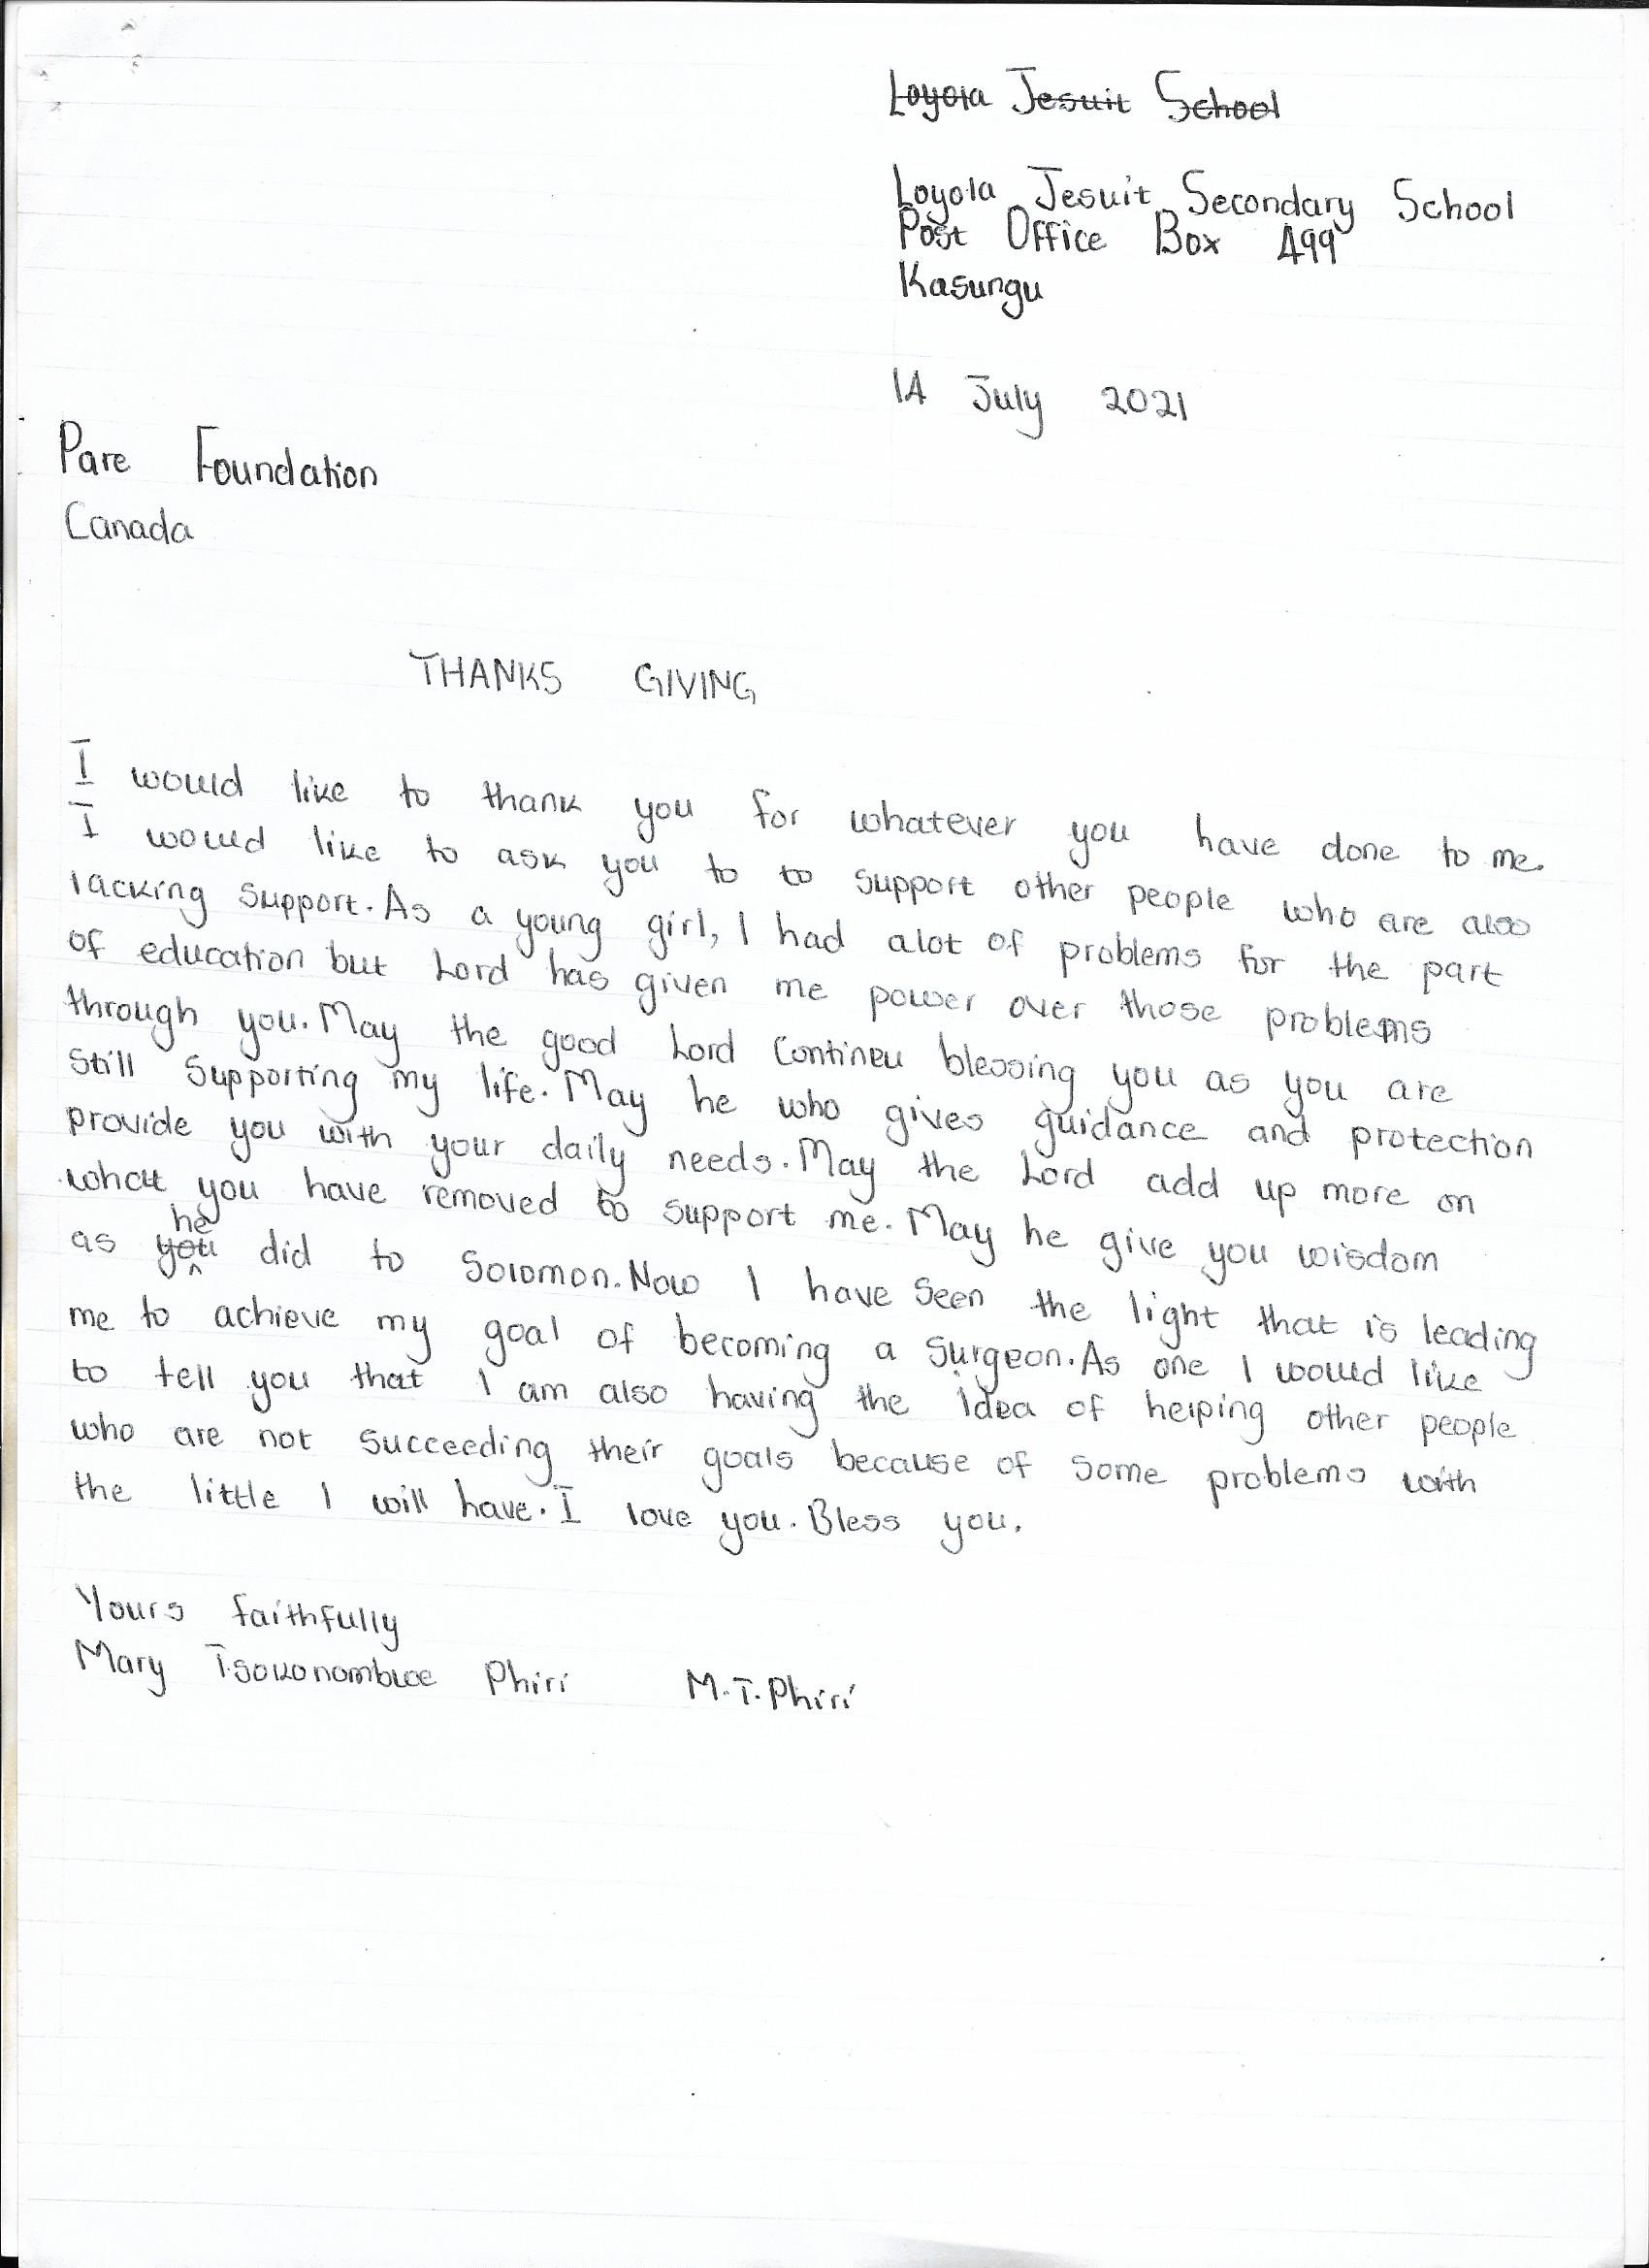 Loyola Jesuit School
Loyola Jesuit Secondary School
Post Office Box 499
Kasungu
14 July 2021
Pare Foundation
Canada
THANKS GIVING
I would like to thank you for whatever you have done to me.
I would like to ask you to to support other people who are also
lacking support. As a young girl, I had alot of problems for the part
of education but Lord has given me power over those problems
through you. May the good Lord Contineu blessing you as you are
still supporting my life. May he who gives guidance and protection
provide you with your daily needs. May the Lord add up more on
what you have removed to support me. May he give you wisdom
as you he did to Solomon. Now I have seen the light that is leading
me to achieve my goal of becoming a surgeon. As one I would like
to tell you that I am also having the idea of helping other people
who are not succeeding their goals because of some problems with
the little I will have. I love you. Bless you.
Yours faithfully
Mary Tsokonombwe Phiri M.T.Phiri